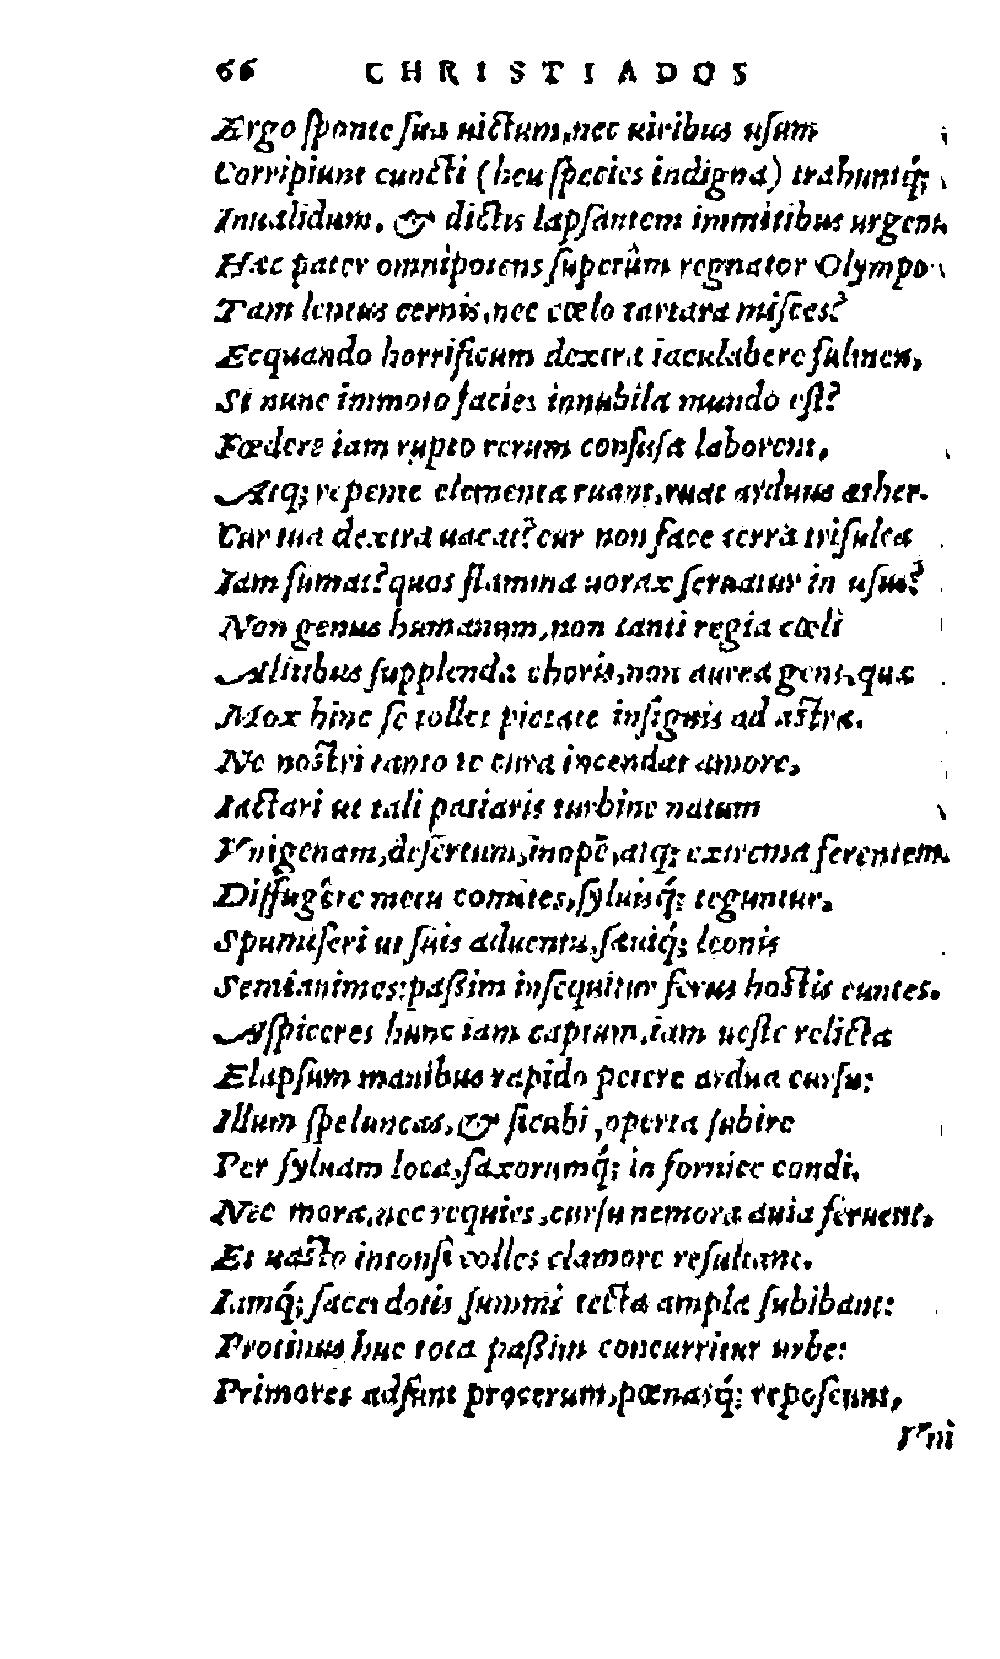 66 CHRISTIADOS
Ergo sponte sua uictum, nec uiribus usum
Corripiunt cuncti (heu species indigna) trahuntq́;
Inualidum, & dictis lapsantem immitibus urgent.
Hæc pater omnipotens superûm regnator Olympo
Tam lentus cernis, nec cœlo tartara misces?
Ecquando horrificum dextra iaculabere fulmen,
Si nunc immoto facies innubila mundo est?
Fœdere iam rupto rerum confusa laborent,
Atq; repente elementa ruant, ruat arduus æther.
Cur tua dextra uacat? cur non face terra trisulca
Iam fumat? quos flamma uorax seruatur in usus?
Non genus humanum, non tanti regia cœli
Alitibus supplenda choris, non aurea gens, quæ
Mox hinc se tollet pietate insignis ad astra.
Ne nostri tanto te cura incendat amore,
Iactari ut tali patiaris turbine natum
Vnigenam, desertum, inopē, atq; extrema ferentem.
Diffugêre metu comites, syluisq́; teguntur.
Spumiferi ut suis aduentu, sæuiq́; leonis
Semianimes: paßim insequitur ferus hostis euntes.
Aspiceres hunc iam captum, iam ueste relicta
Elapsum manibus rapido petere ardua cursu:
Illum speluncas, & sicubi, operta subire
Per syluam loca, saxorumq́; in fornice condi.
Nec mora, nec requies, cursu nemora auia feruent,
Et uasto intonsi colles clamore resultant.
Iamq́; sacerdotis summi tecta ampla subibant:
Protinus huc tota paßim concurritur urbe:
Primores adsunt procerum, pœnasq́; reposcunt,
Vni